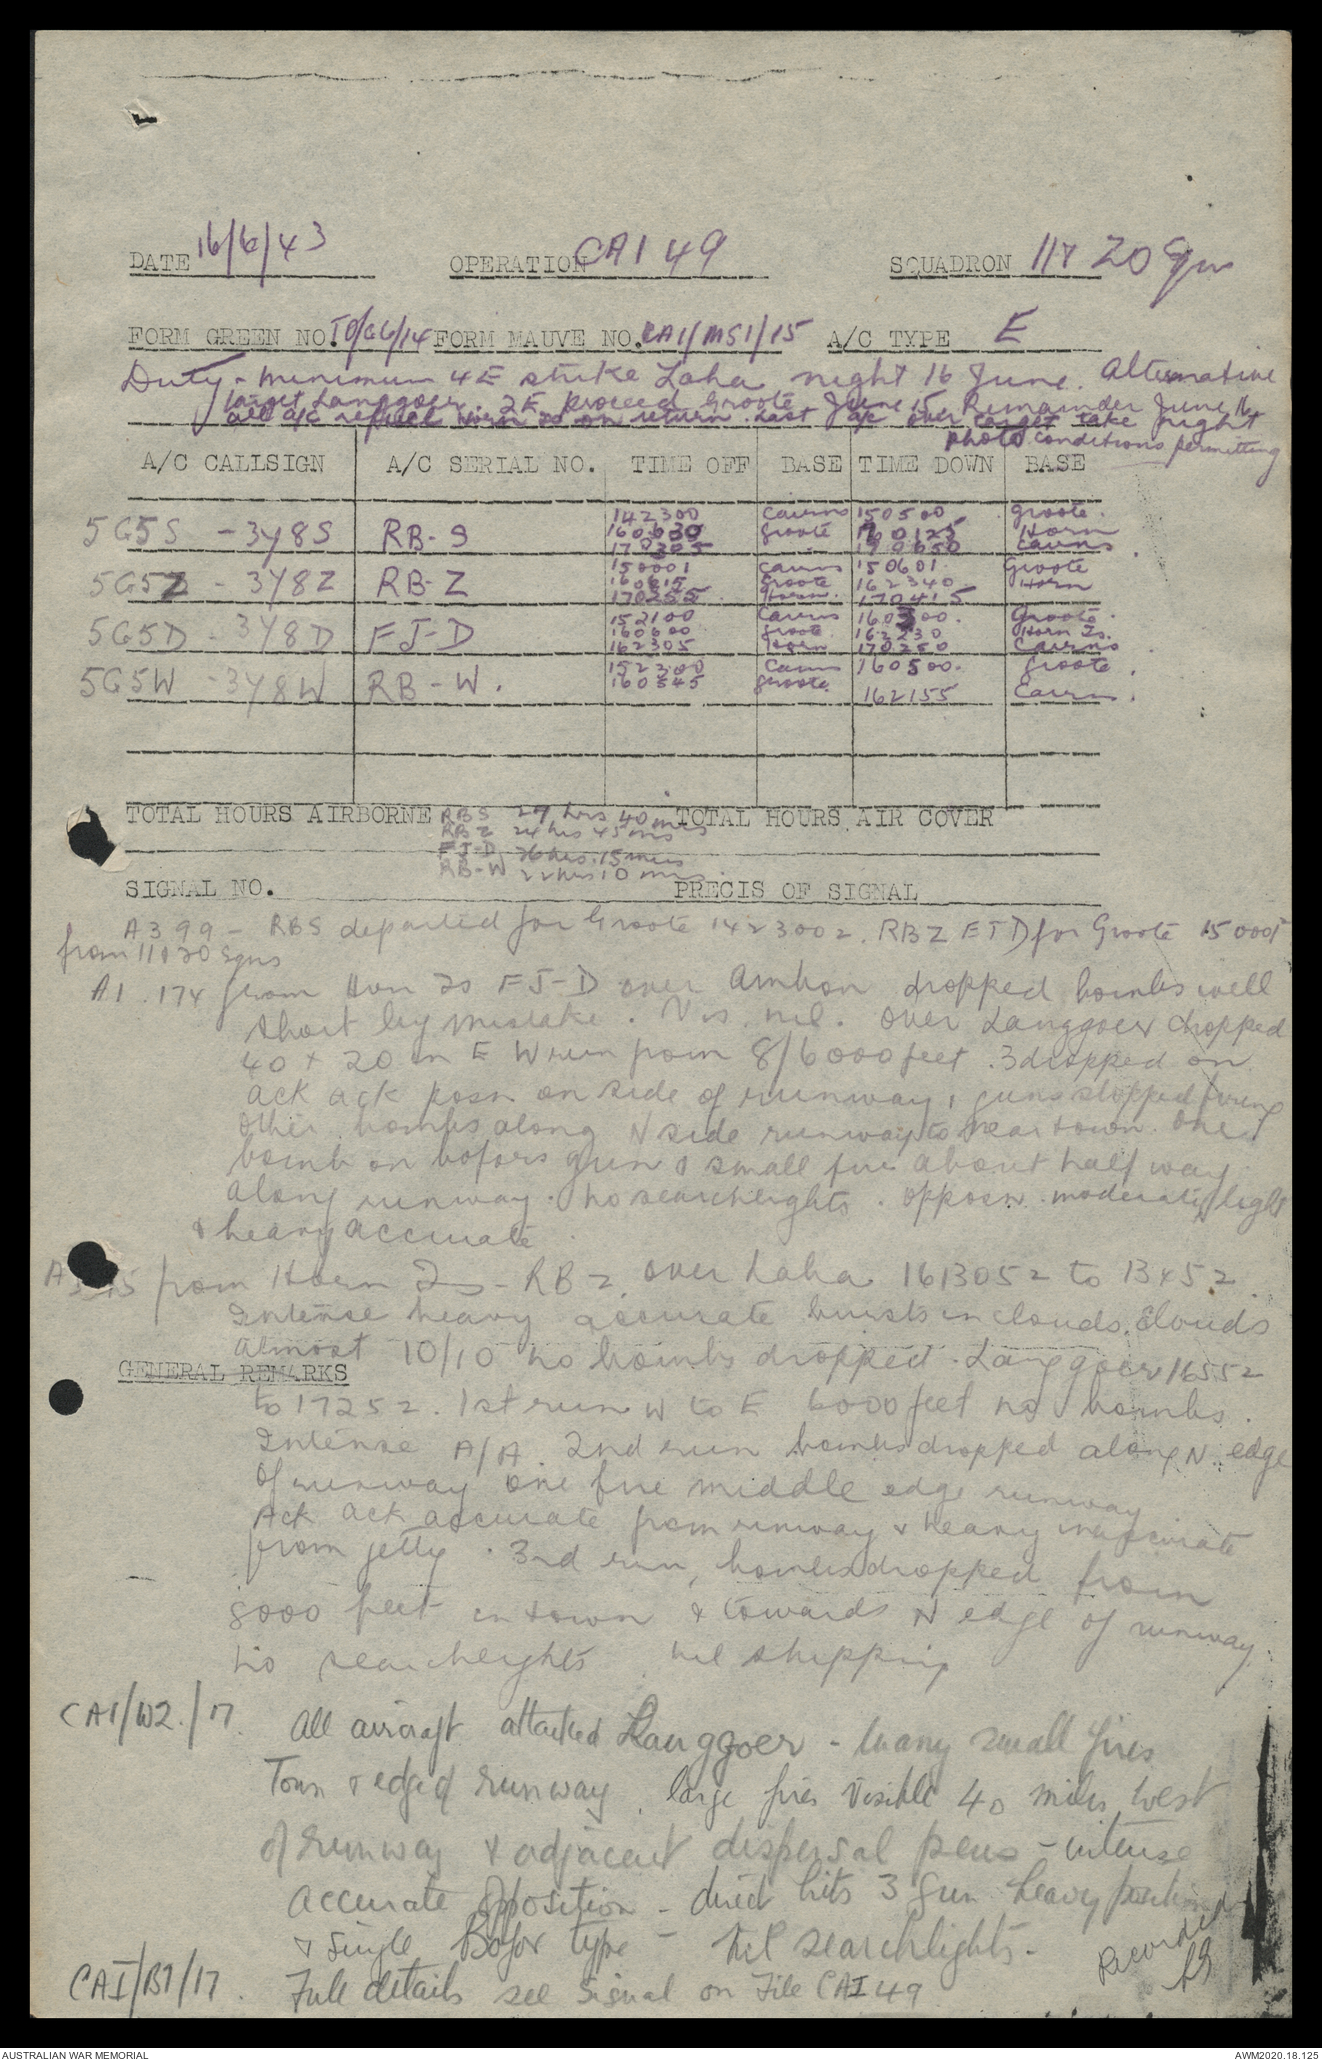 DATE 16/6/43 OPERATION CAI 49 SQUADRON 11 & 20 Sqn
FORM GREEN NO. FORM MAUVE NO. CAI/MS1/15 A/C TYPE E
Duty - minimum 4E strike Laha night 16 June. Alternative
target Langgoer. 2E proceed Groote June 15. Remainder June 16.
all a/c refuel Horn Is on return. Last a/c over target take night
photo conditions permitting
A/C CALLSIGN A/C SERIAL NO. TIME OFF BASE TIME DOWN BASE
142300 Cairns 150500 Groote.
5G5S - 3Y8S RB-S 160630 Groote 160125 Horn
170305 170650 Cairns.
150001 Cairns 150601 Groote
5G5Z - 3Y8Z RB-Z 160615 Groote 162340 Horn
170255 Horn. 170415
152100 Cairns 160300. Groote.
5G5D - 3Y8D FJ-D 160600 Groote. 162230 Horn Is.
162305 Horn 170250 Cairns
152300 Cairns 160500. Groote.
5G5W - 3Y8W RB-W. 160545 Groote. 162155 Cairns.
TOTAL HOURS AIRBORNE RBS 27 hrs 40 mins TOTAL HOURS AIR COVER
RBZ 24 hrs 45 mins
FJ-D 26 hrs. 15 mins
RB-W 22 hrs 10 mins.
SIGNAL NO. PRECIS OF SIGNAL
A399 - RBS departed for Groote 142300Z. RBZ ETD for Groote 150001
from 11 & 20 Sqns
A1.174 from Horn Is FJ-D over Ambon dropped bombs well
short by mistake. Vis. nil. Over Langgoer dropped
40 + 20 in E W run from 8/6000 feet. 3 dropped on
ack ack posn on side of runway, guns stopped firing
Other bombs along N side runway to near town. One
bomb on bofors gun & small fire about half way
along runway. No searchlights. Opposn. moderate light
& heavy accurate.
from Horn Is - RBZ. over Laha 161305Z to 1345Z.
Intense heavy accurate bursts in clouds. Clouds
almost 10/10 no bombs dropped. Langgoer 1655Z
GENERAL REMARKS
to 1725Z. 1st run W to E 6000 feet no bombs.
Intense A/A. 2nd run bombs dropped along N. edge
of runway one fire middle edge runway
Ack ack accurate from runway & heavy inaccurate
from jetty. 3rd run, bombs dropped from
8000 feet in town & towards N edge of runway.
No searchlights nil shipping
CAI/W2./17. All aircraft attacked Langgoer - many small fires
Town & edge of runway. large fires visible 40 miles west
of runway & adjacent dispersal pens - intense
accurate opposition - direct hits 3 gun heavy position
& single Bofor type - Nil searchlights.
Recorded
CAI/B1/17. Full details see signal on File CAI 49
AUSTRALIAN WAR MEMORIAL AWM2020.18.125